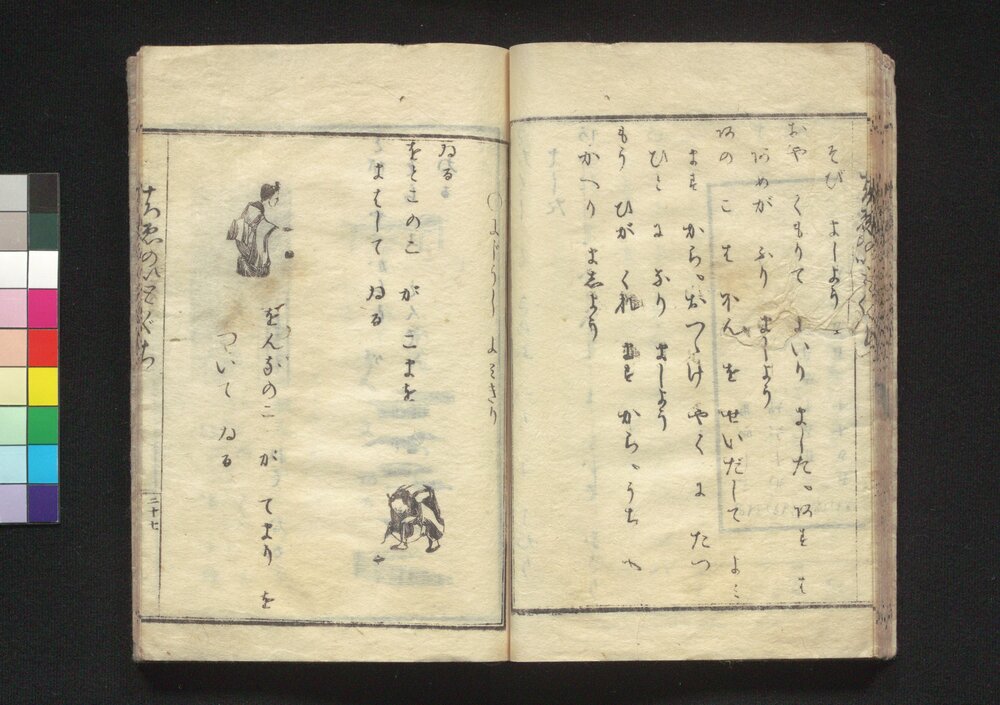 そび ましよう
おや くもりて まいり ました。 あす は
あめが ふり ましよう
あのこ は ほん を せいだして よみ
ます から、おつつけ やく に たつ
ひと に なり ましよう
もう ひが くれ ます から、うち へ
かへり ましよう
〇 よみきり
ゐる
をとこのこ が こまを
まはして ゐる
をんなのこ が てまり を
ついて ゐる
ちゑのいとぐち
二十七